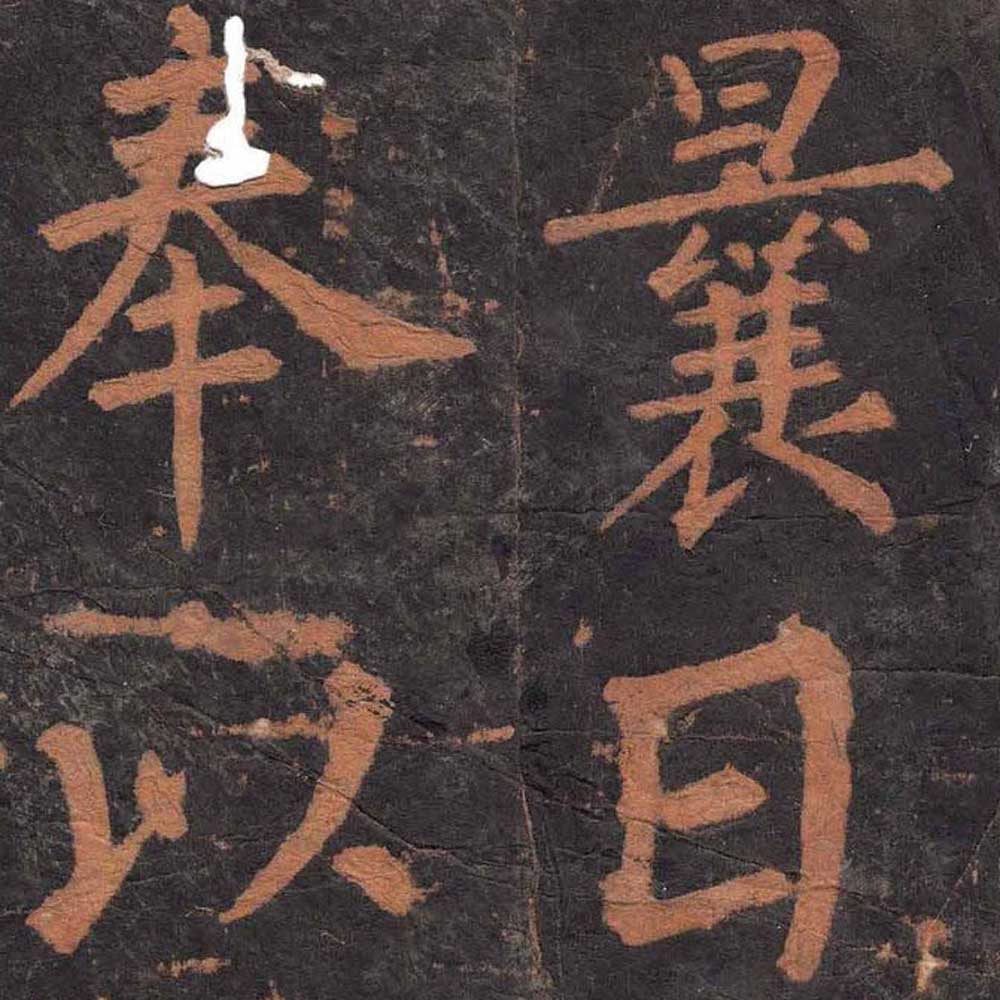 曩日
奉以